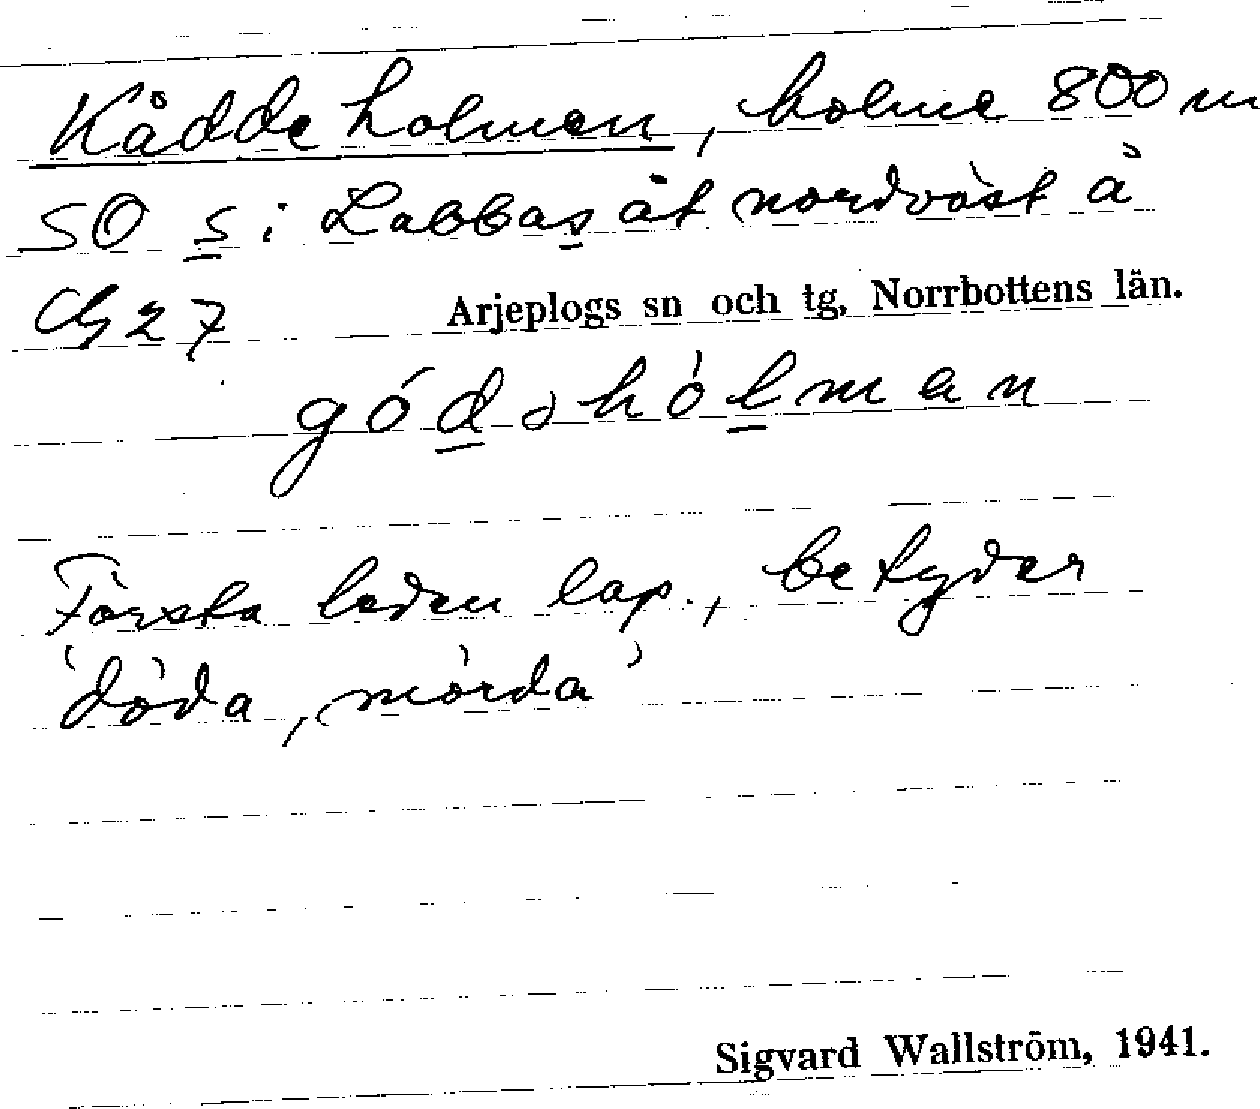 Kåddeholmen, holme 800 m
SO s i Labbas åt nordväst å
G 27
Arjeplogs sn och tg, Norrbottens län.
gódəhòlman
Första leden lap., betyder
'döda, mörda'
Sigvard Wallström, 1941.